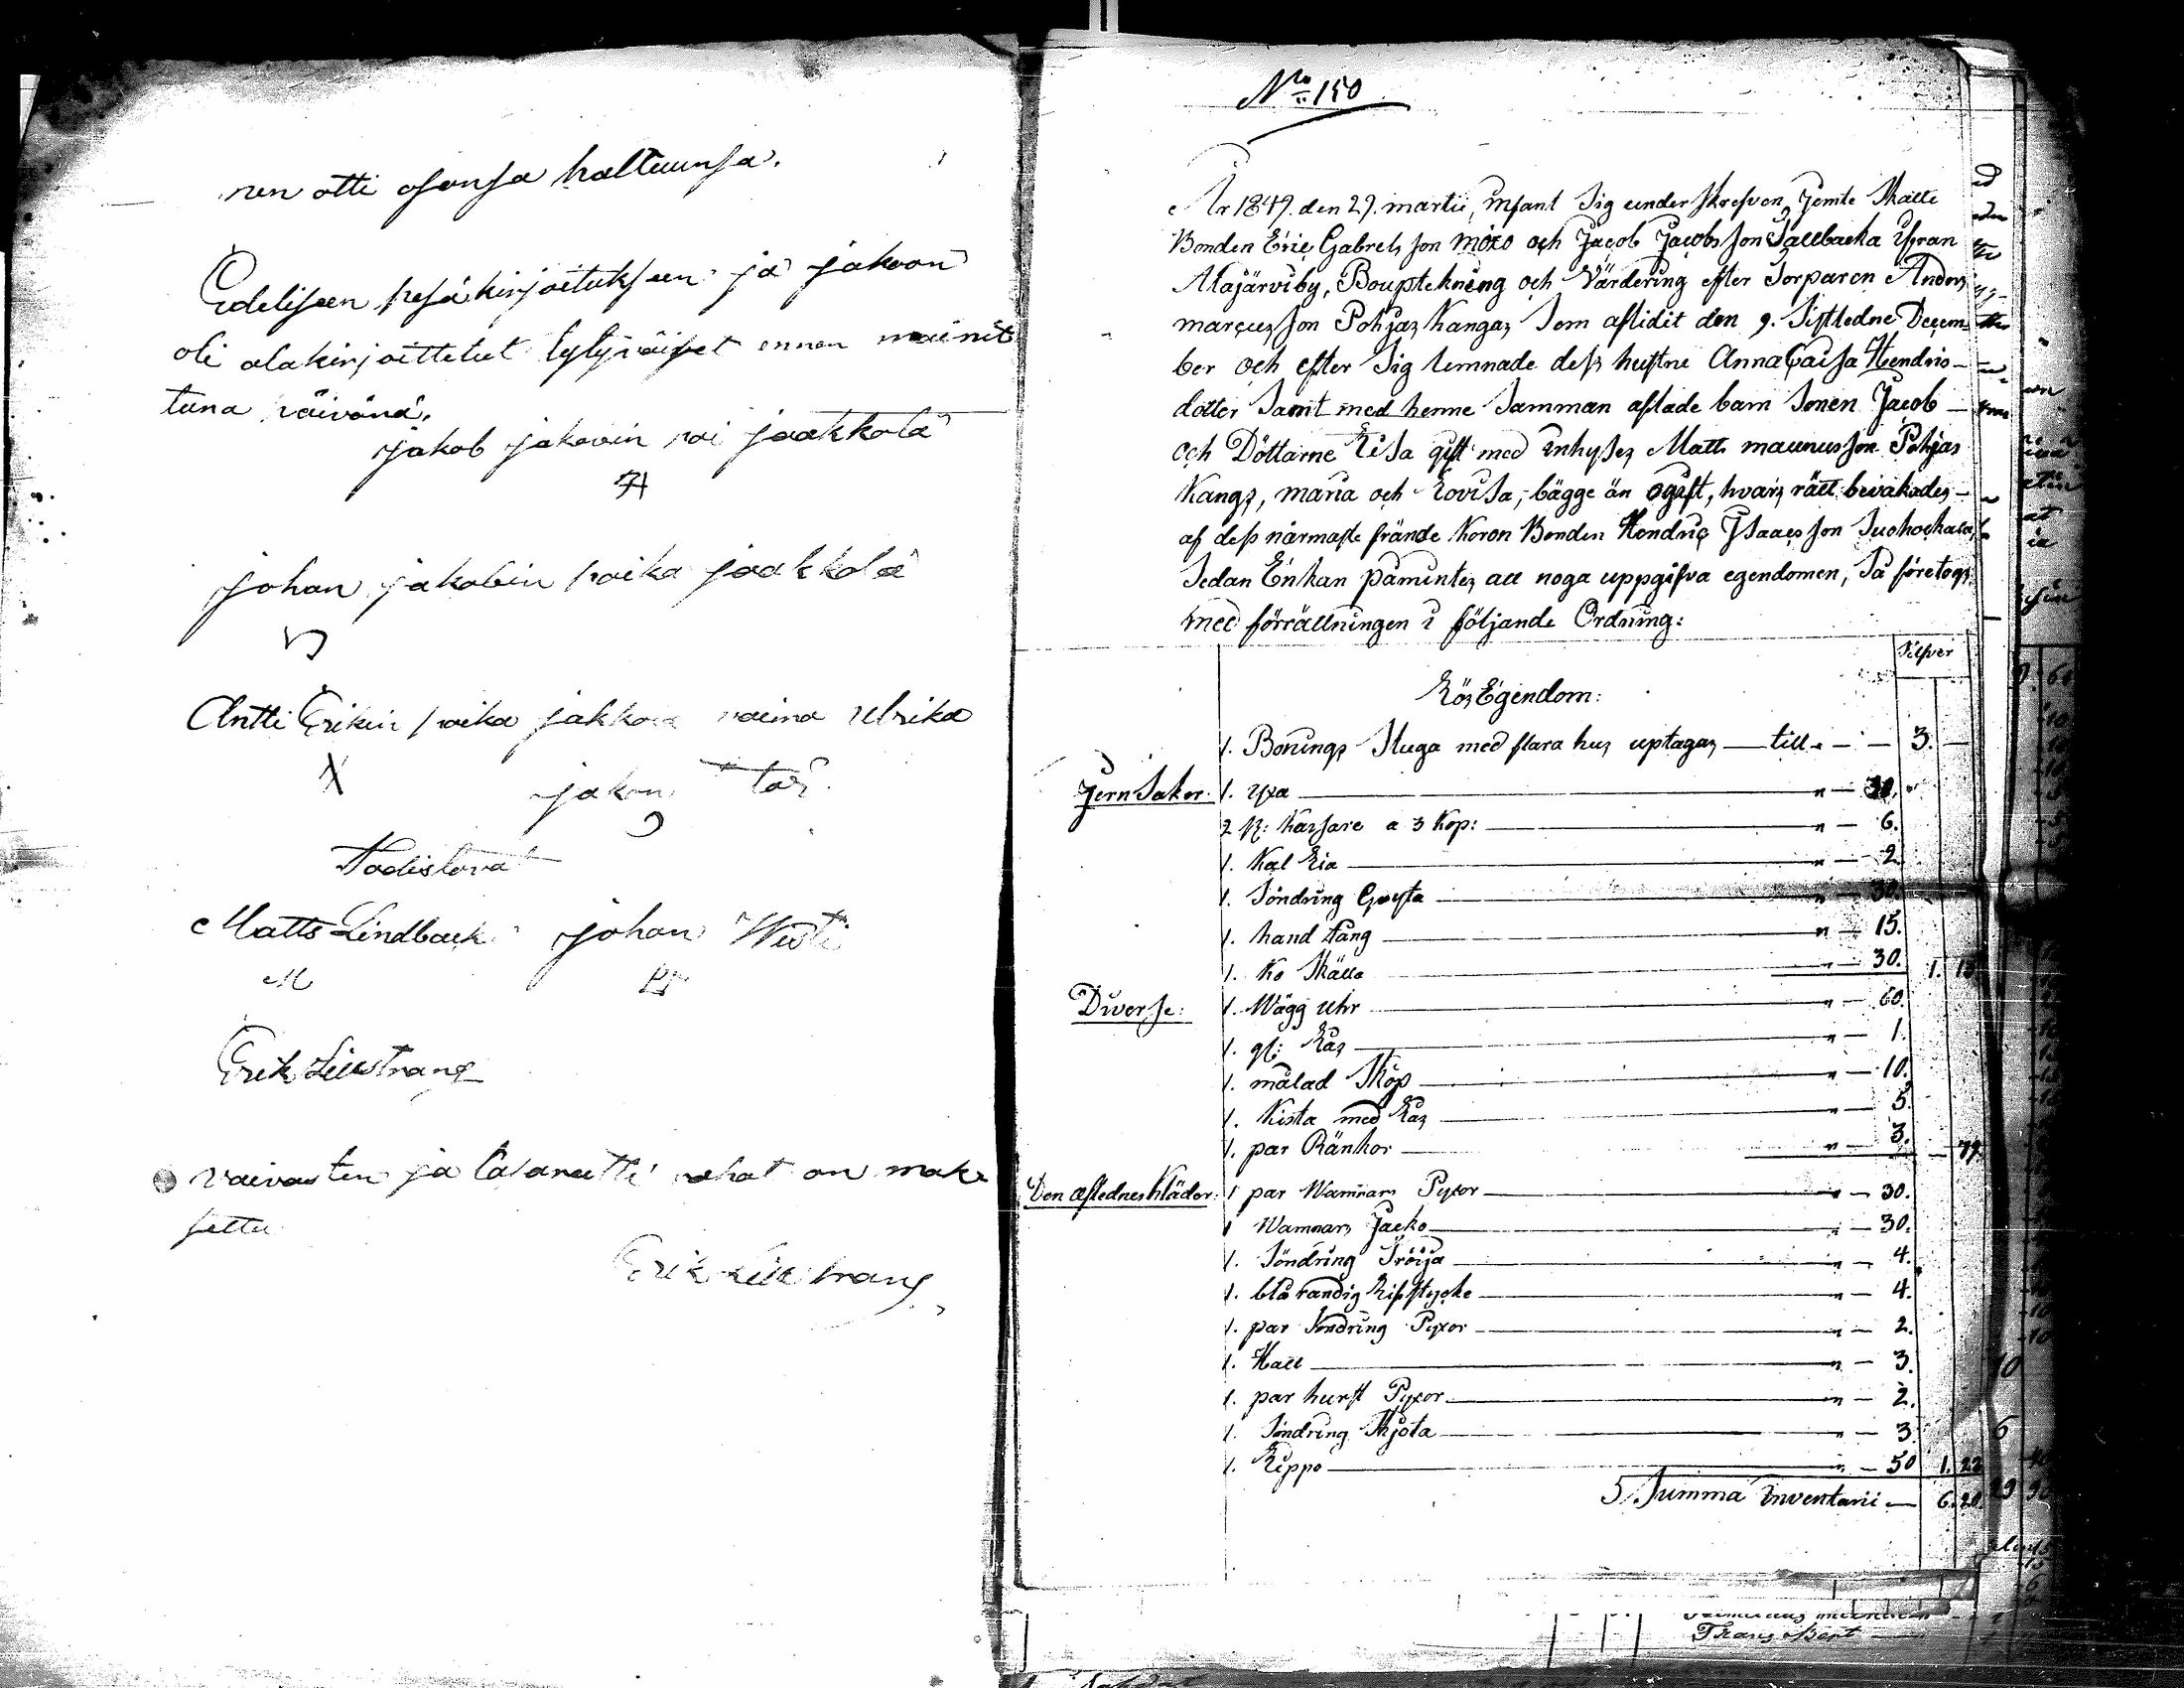 nen otti osonsa haltuunsa.
Edelisen pesä kirjoituksen ja jakoon
oli alakirjoittetut tytyväiset ennen mainit
tuna päivänä.
Jakob jakovin poi jaakkola
johan jakobin poika jaakkola
Antti Erikin poika jakkola vaimo Ulrika
jakon tär
Todistavat
Matts Lindback johan
M
Erik Liljestrang
vaivasten ja prosentti rahat on mak
settu
Erik Liljestrang
No 150
År 1849. den 29. martii, infant Sig underskrefven Jemte Skatte
Bonden Eric Gabrels son möxo och Jacob Jacobs son Sallbacka ifran
Alajärviby, Bouptekning och Värdering efter Torparen Anders
marcus son Pohjas Kangas Som aflidit den 9. Sistledne Decem-
ber och efter Sig lemnade dess hustru Anna Caisa Hendric-
dotter Samt med henne Samman aflade barn Sonen Jacob
och Döttarne Lisa gift med inhyses Matts maunus son Pohjas
Kangs, maria och Lovisa, bägge än ogift, hvars rätt bevakades
af dess närmaste frände Koron Bonden Hendric Isaacs son
Sedan Enkan påmintes att noga uppgifva egendomen, Så företogs
med förrättningen i följande Ordning:
Silfver
Lös Egendom:
1. Bonings Stuga med flara hus uptages till - 3. -
Jern Saker: 1. yxa " - 30.
2 st: Karfare a 3 Kop: " - 6.
1. Kal Lia " - 2
1. Söndring Gryta " - 30.
1. hand tång " - 15.
1. Ko Skälla " - 30. 1. 13
Diverse: 1. Wägg Uhr " - 60.
1. gl: Las " - 1.
1. målad Skåp " - 10.
1. Kista med Las " - 5.
1. par Ränkor " - 3. - 79.
Den aflednes Kläder: 1 par Wammars Pyxor " - 30.
1 Wammars Jacko " - 30.
1. Söndring Tröija " - 4.
1. blå randig Lifstycke " - 4.
1. par Söndring Pyxor " - 2.
1. Hatt " - 3.
1. par hurst Pyxor " - 2.
1. Söndring Skjota " - 3.
1. Lippo " - 50 1. 22
Summa inventarii - 6. 20.
Transport